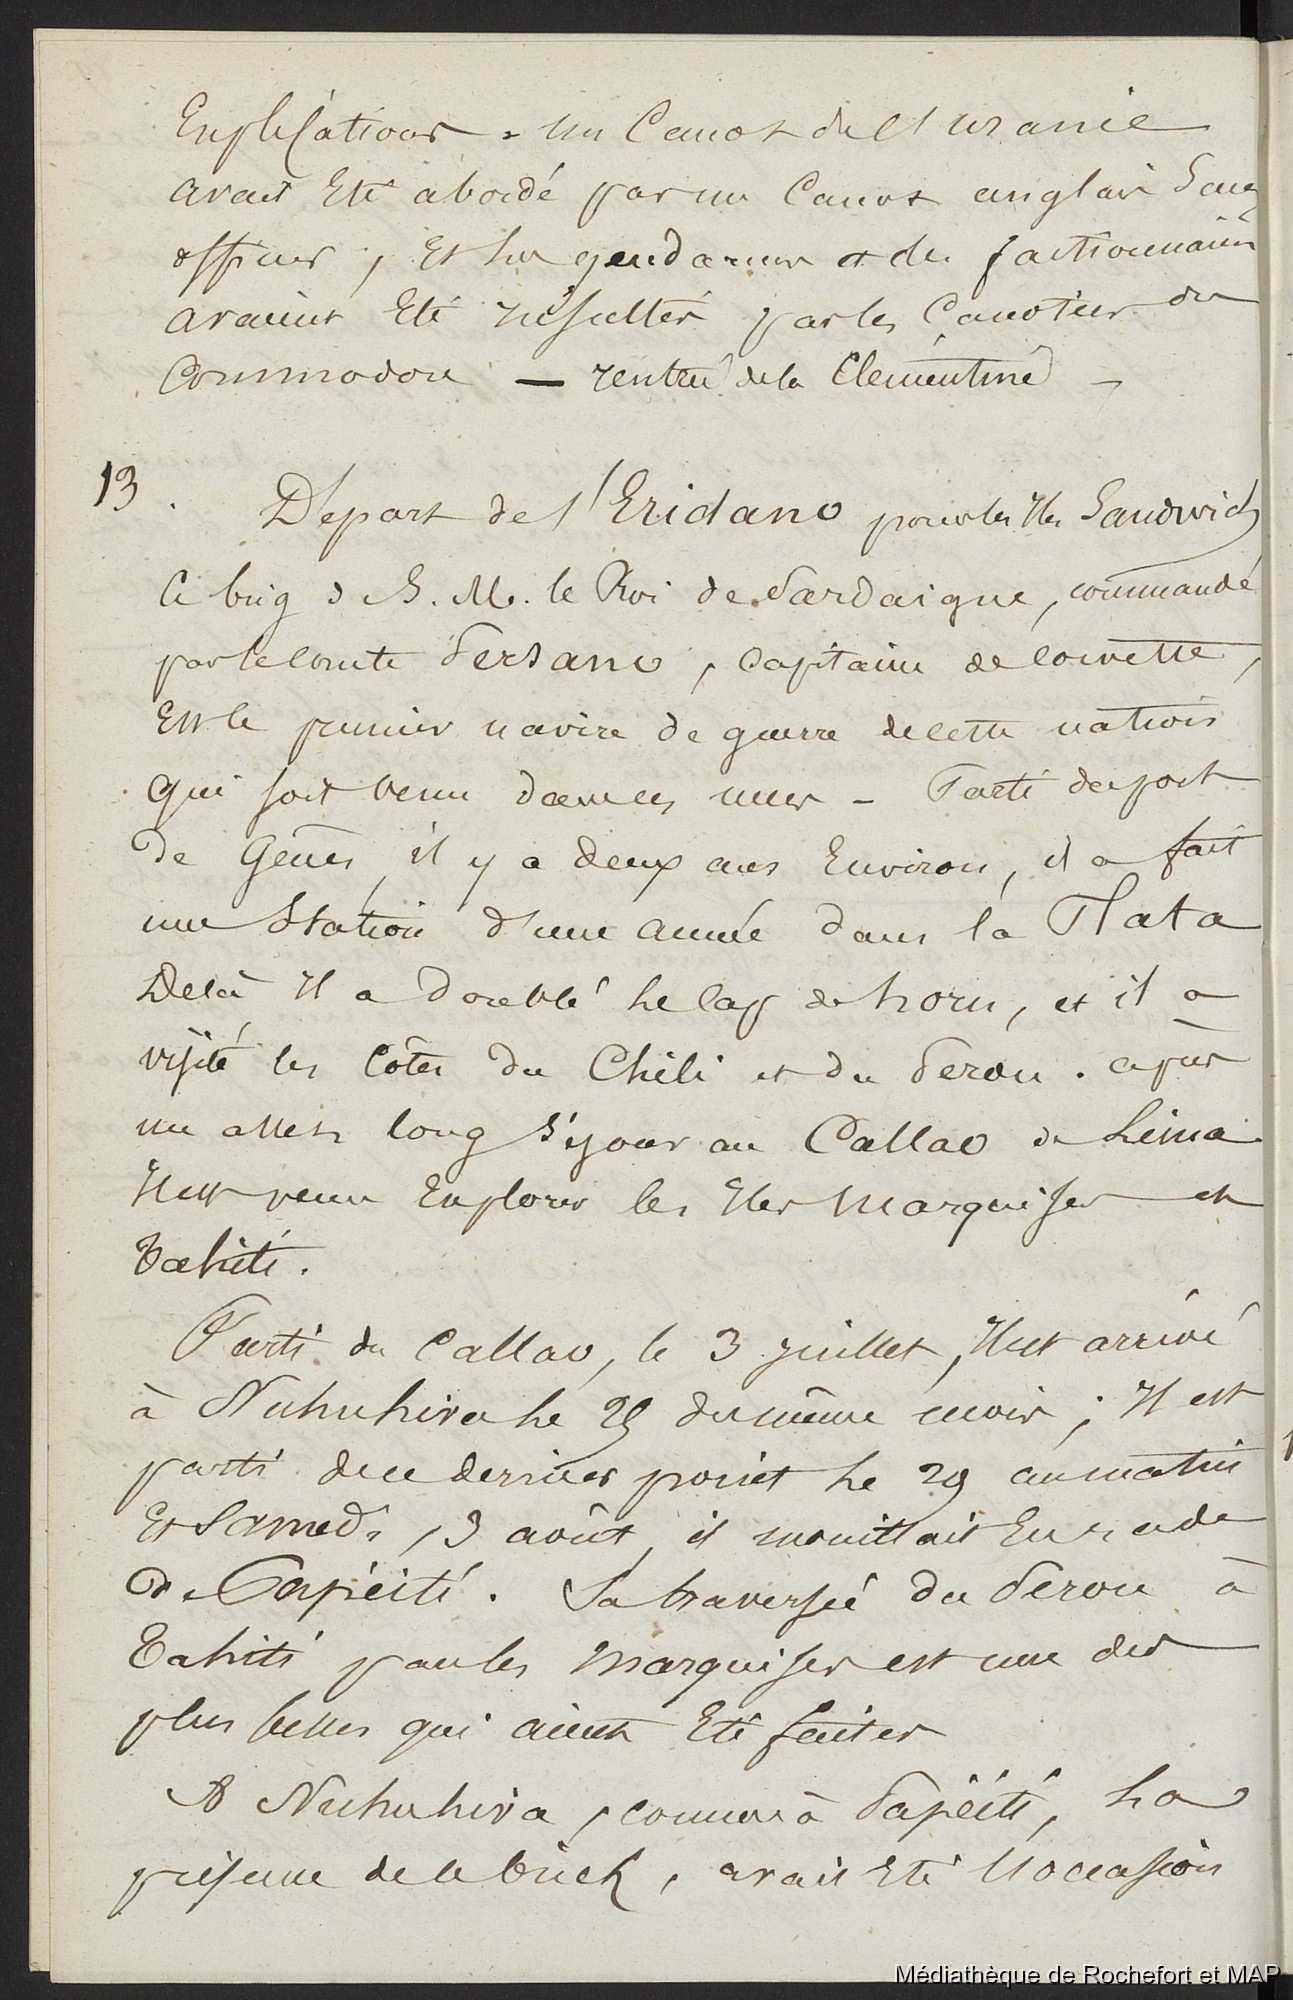 Explications - un Canot de l'uranie
avait Eté abordé par un Canot anglais Sans
officier, Et les gendarmes et des factionnaires
avaient Eté insultés par les Canotiers du
Commodore — rentrée de la Clémentine -
13. Départ de l'Eridano pour les Iles Sandwich
Ce brig de S. M. le Roi de Sardaigne, commandé
par le Comte Persano, Capitaine de Corvette,
Est le premier navire de guerre de cette nation
qui soit venu dans ces mers - Parti du port
de Gênes, il y a deux ans Environ, il a fait
une Station d'une année dans la Plata
Delà Il a doublé le Cap de horn, et il a
visité les Côtes du Chili et du Perou. après
un assez long séjour au Callao de Lima
Il est venu Explorer les Iles Marquises et
Tahiti.
Parti du Callao, le 3 juillet, Il est arrivé
à Nuhuhiva le 25 du même mois; Il est
parti de ce dernier point le 29 au matin
Et Samedi, 3 août, il mouillait En rade
de Papéiti. Sa traversée du Perou à
Tahiti par les Marquises est une des
plus belles qui aient Eté faites
A Nuhuhiva, comme à Papéiti, La
présence de ce brick, avait Eté l'occasion
Médiathèque de Rochefort et MAP